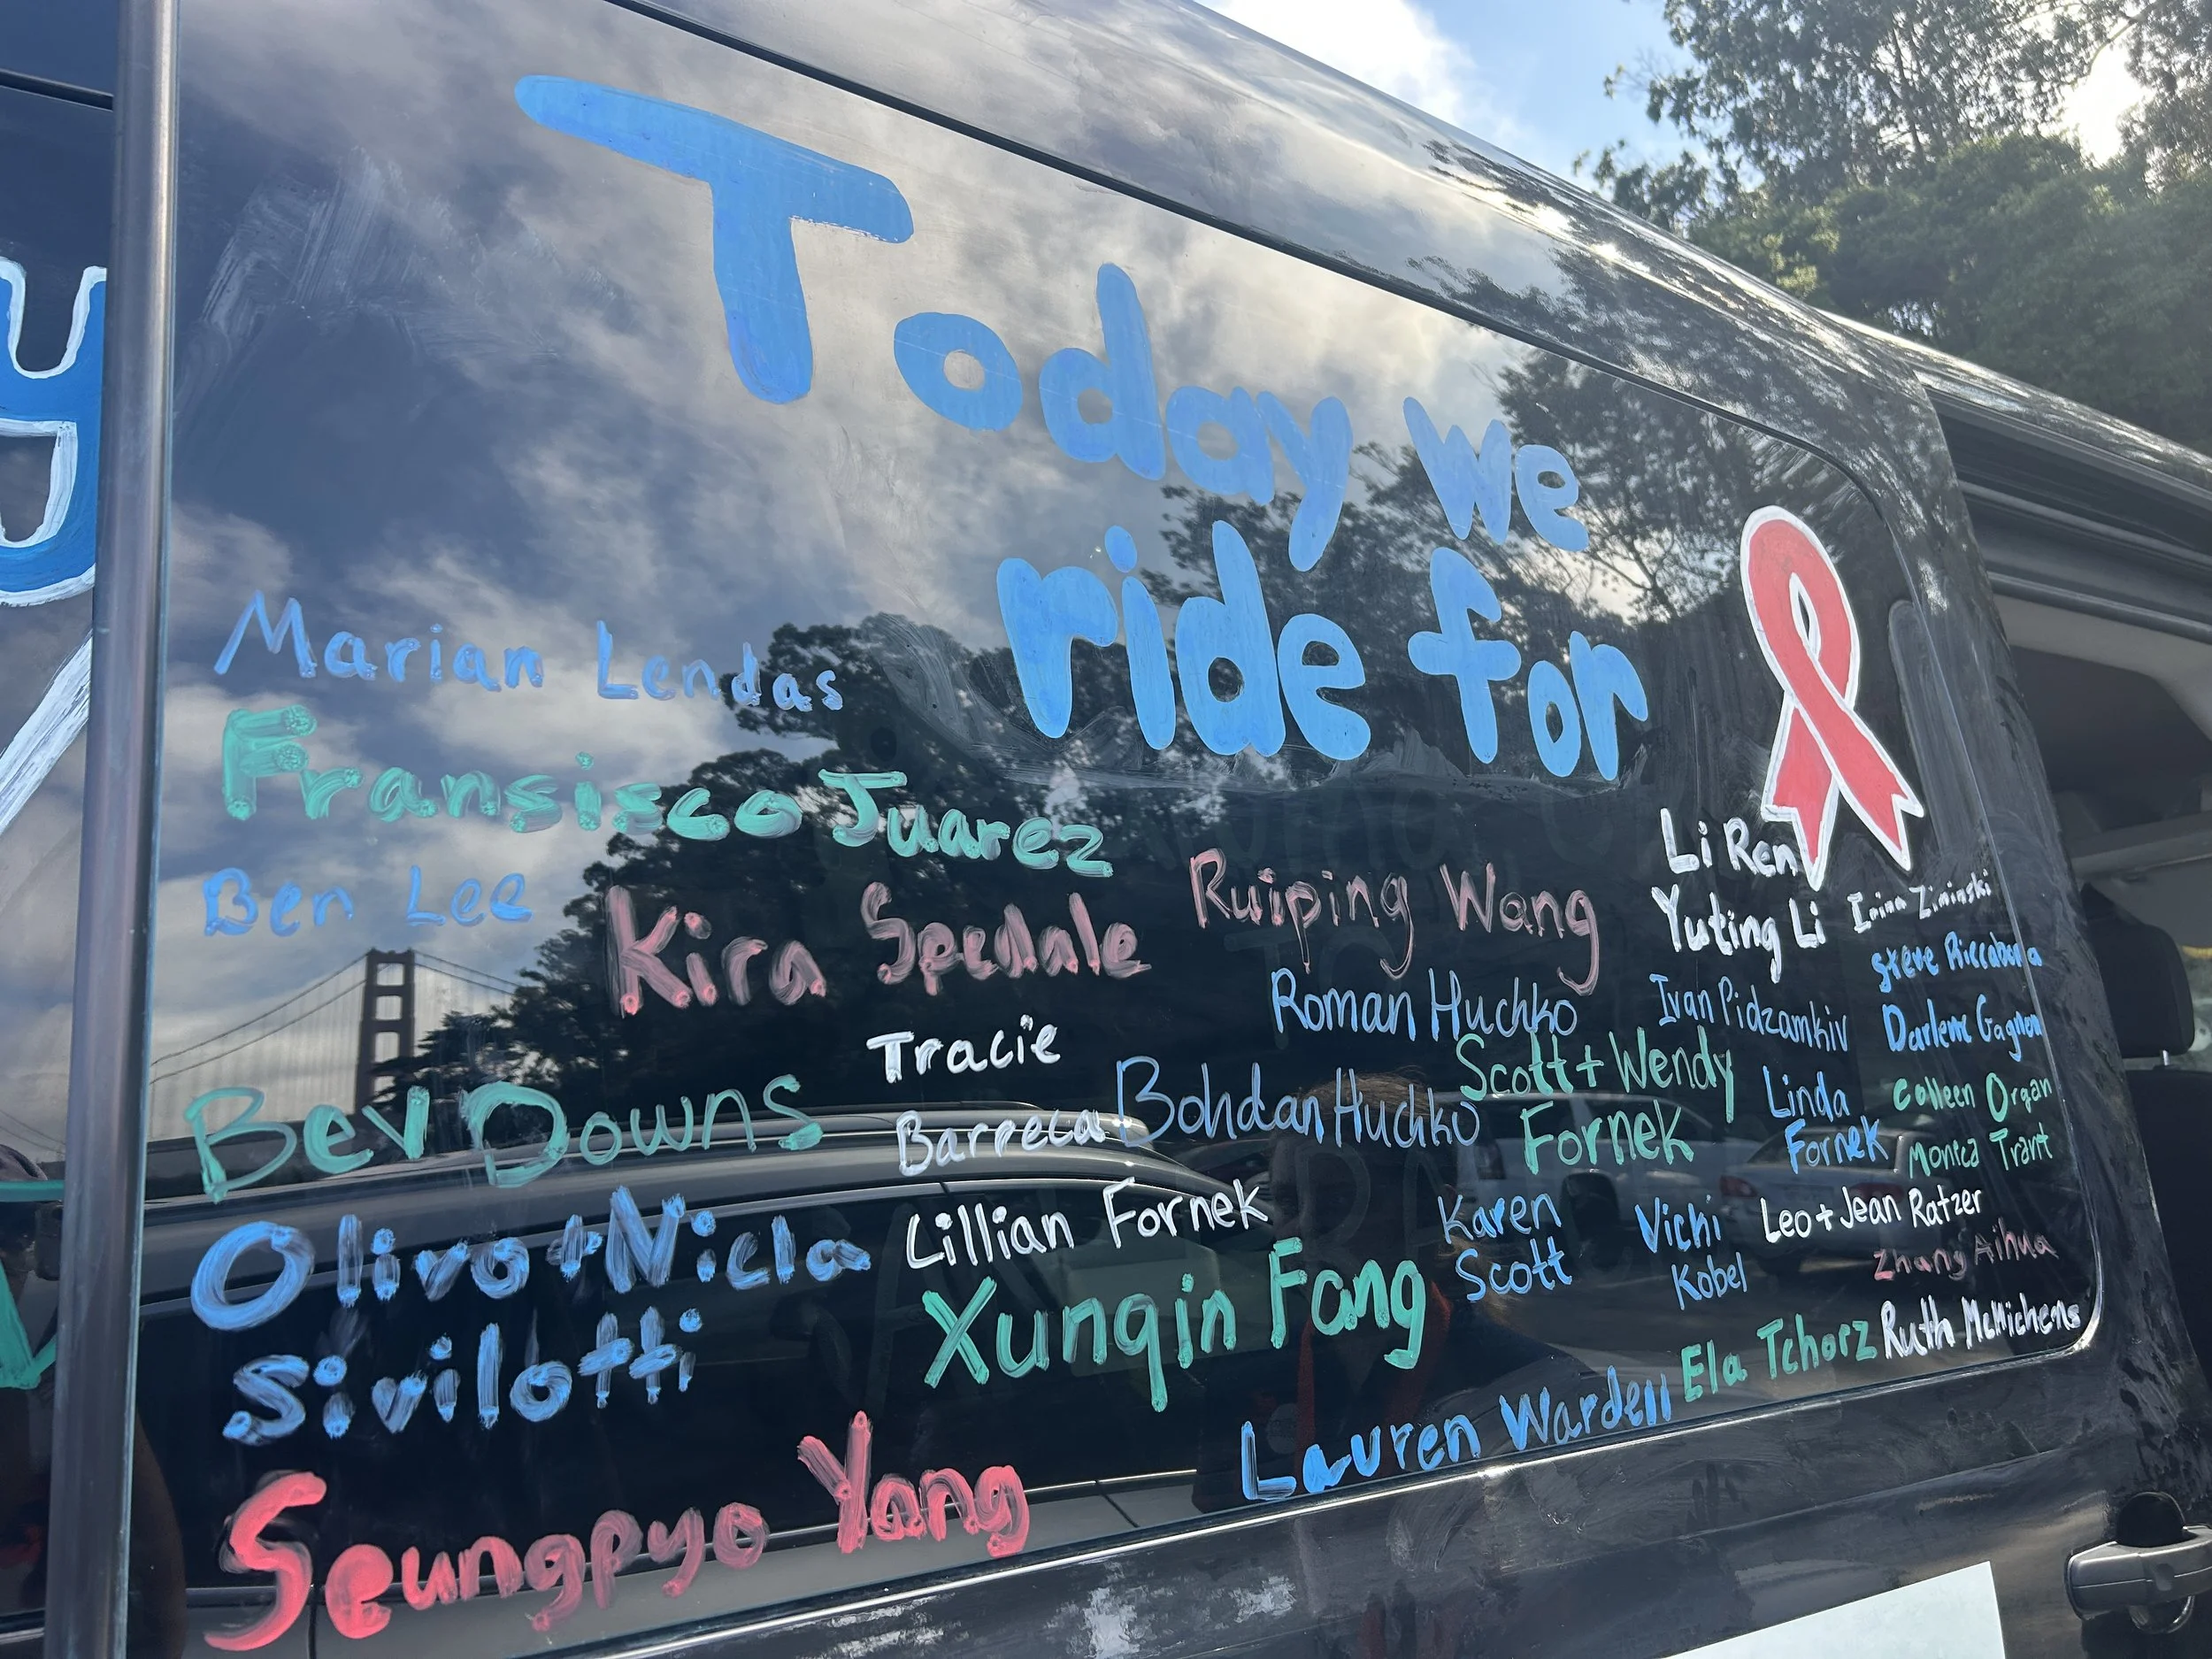 Today we
ride for
Marian Lendas
Fransisco Juarez
Ben Lee
Kira Spedale
Ruiping Wang
Li Ren
Yuting Li
Irina Ziminski
Steve Riccabona
Roman Huchko
Ivan Pidzamkiv
Darlene Gagnon
Tracie
Barreca
Bohdan Huchko
Scott + Wendy
Fornek
Linda
Fornek
Colleen Organ
Monica Trant
Bev Downs
Olivo + Nicla
Sivilotti
Lillian Fornek
Karen
Scott
Vichi
Kobel
Leo + Jean Ratzer
Zhang Aihua
Xunqin Fang
Ela Tchorz
Ruth McMichens
Lauren Wardell
Seungpyo Yang